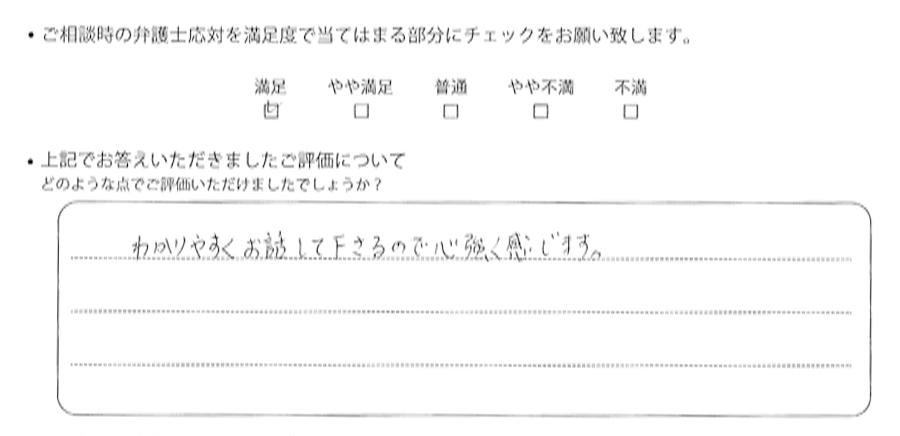 ・ご相談時の弁護士応対を満足度で当てはまる部分にチェックをお願い致します。
満足 やや満足 普通 やや不満 不満
☑ □ □ □ □
・上記でお答えいただきましたご評価について
どのような点でご評価いただけましたでしょうか？
わかりやすくお話して下さるので心強く感じます。